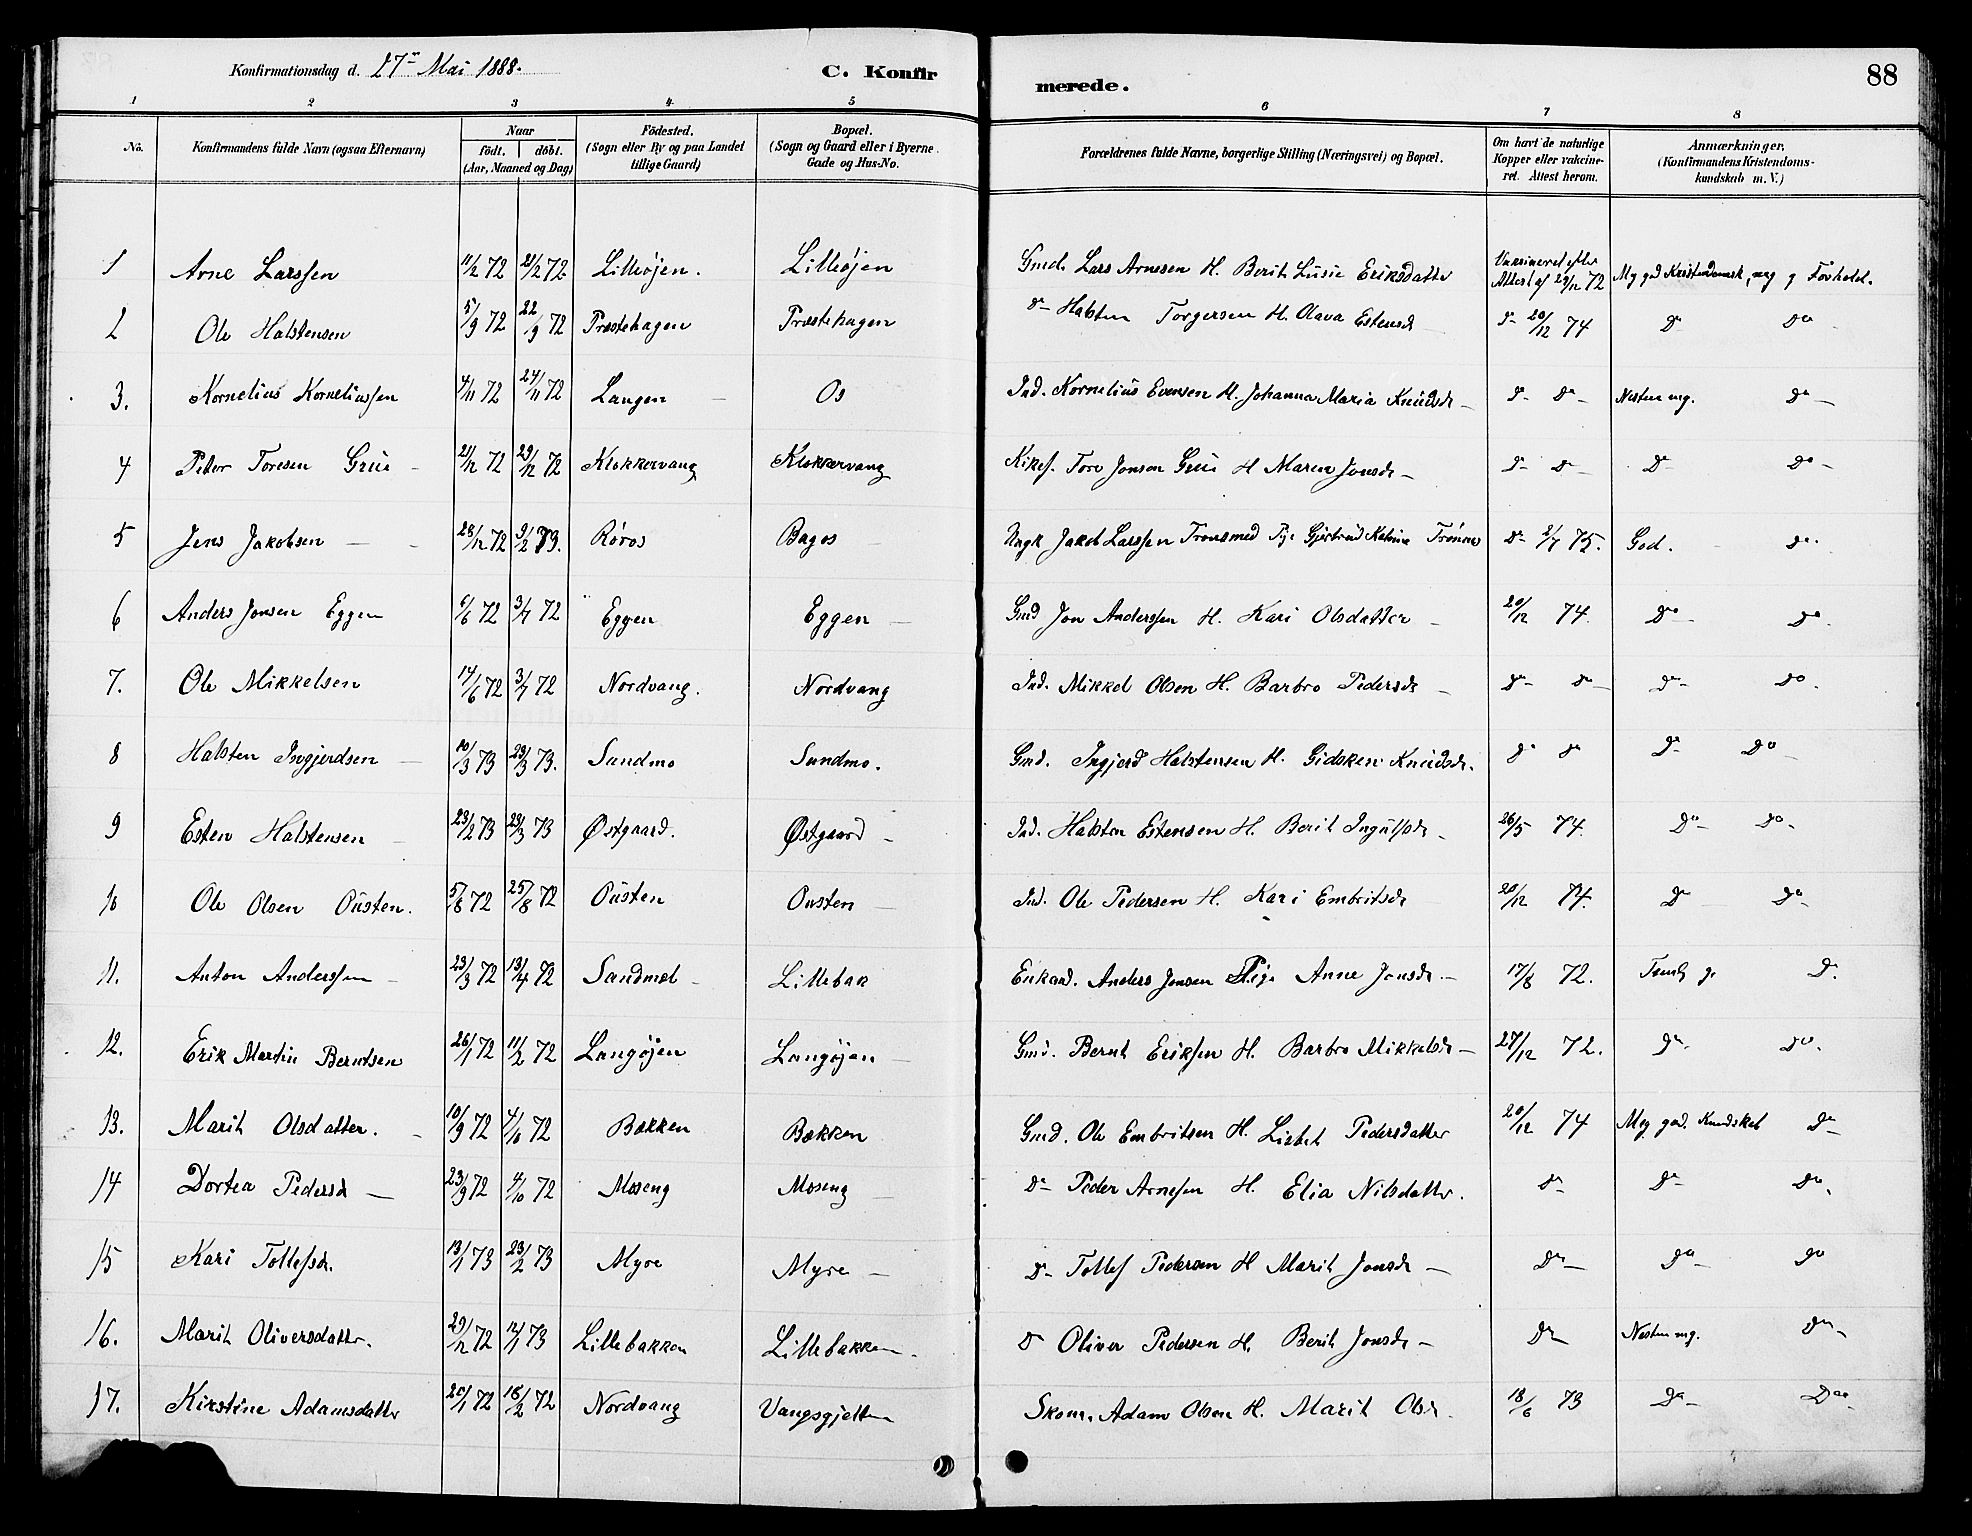 Konfirmationsdag d. 27de Mai 1888. C. Konfir merede. 88
1 2 3 4 5 6 7 8
No. Konfirmandens fulde Navn (ogsaa Efternavn) Naar födt. döbt. (Aar, Maaned og Dag) Födested. (Sogn eller By og paa Landet tillige Gaard) Bopæl. (Sogn og Gaard eller i Byerne Gade og Hus-No. Forældrenes fulde Navne, borgerlige Stilling (Næringsvei) og Bopæl. Om havt de naturlige Kopper eller vakcine-ret. Attest herom. Anmærkninger. (Konfirmandens Kristendoms-kundskab m. V.)
1 Arne Larssen 11/2 72 21/2 72 Lilleøjen. Lilleøjen Gmd. Lars Arnesen H. Berit Lusie Eriksdatter Vaksineret efter Attest af 29/12 72 My god Kristendomsk, meg g Forhold.
2 Ole Halstensen 5/9 72 22/9 72 Præstehagen Præstehagen Do Halsten Torgersen H. Olava Estensd Do 20/12 74 Do Do
3. Kornelius Korneliussen 4/11 72 24/11 72 Langen Os Ind. Kornelius Evensen H. Johanna Maria Knudsdr Do Do Nesten mg. Do
4 Peder Toresen Grue 21/12 72 29/12 72 Klokkervang Klokkervang Kikes. Tore Jonsen Grue H Maren Jonsdr Do Do Do Do
5 Jens Jakobsen 28/12 72 9/2 73. Røros Bagos Ungk Jakob Larssen Tronsmed Pige Gjertrud Katrine Trønnes Do 2/7 75. God. Do
6 Anders Jonsen Eggen 6/6 72 3/7 72 Eggen Eggen Gmd Jon Anderssen H. Kari Olsdatter 20/12 74. Do Do
7. Ole Mikkelsen 14/6 72 3/7 72 Nordvang. Nordvang Ind. Mikkel Olsen H. Barbro Pedersdr Do Do Do Do
8 Halsten Ingjerdsen 10/3 73 23/3 73. Sandmo Sandmo. Gmd. Ingjerd Halstensen H. Gidsken Knudsdr. Do Do Do Do
9 Esten Halstensen 23/2 73 23/3 73 Østgaard. Østgaard Ind. Halsten Estensen H Berit Ingulfsdr 26/5 74. Do Do
10 Ole Olsen Ousten. 5/8 72 25/8 72 Ousten Ousten Ind. Ole Pedersen H. Kari Embritsdr 20/12 74. Do Do
11. Anton Anderssen 23/3 72 13/4 72 Sandmæl Lillebak Enkem. Anders Jonsen Pige Anne Jonsdr. 17/8 72. Temlg g. Do
12. Erik Martin Berntsen 26/1 72 11/2 72 Langøjen Langøjen Gmd. Bernt Eriksen H. Barbro Mikkelsdr 27/12 72. Do Do
13. Marit Olsdatter. 10/9 72 4/10 72 Bækken Bækken Gmd. Ole Embritsen H. Lisbet Pedersdatter 20/12 74 Meg god. Kundskab Do
14 Dortea Pedersd 23/9 72 4/10 72 Moseng Moseng Do Peder Arnesen H. Elia Nilsdatter. Do Do Do
15 Kari Tollefsdr. 13/1 73 23/2 73 Myre Myre Do Tollef Pedersen H Marit Jonsdr Do Do Do
16. Marit Oliversdatter. 29/12 72 12/1 73 Lillebakken Lillebakken. Do Oliver Pedersen H. Berit Jonsdr Do Nesten mg. Do
17. Kirstine Adamsdatter 20/1 72 18/2 72 Nordvang Vangsgjelten Skom. Adam Olsen H. Marit Olsd. 18/6 73 Do Do